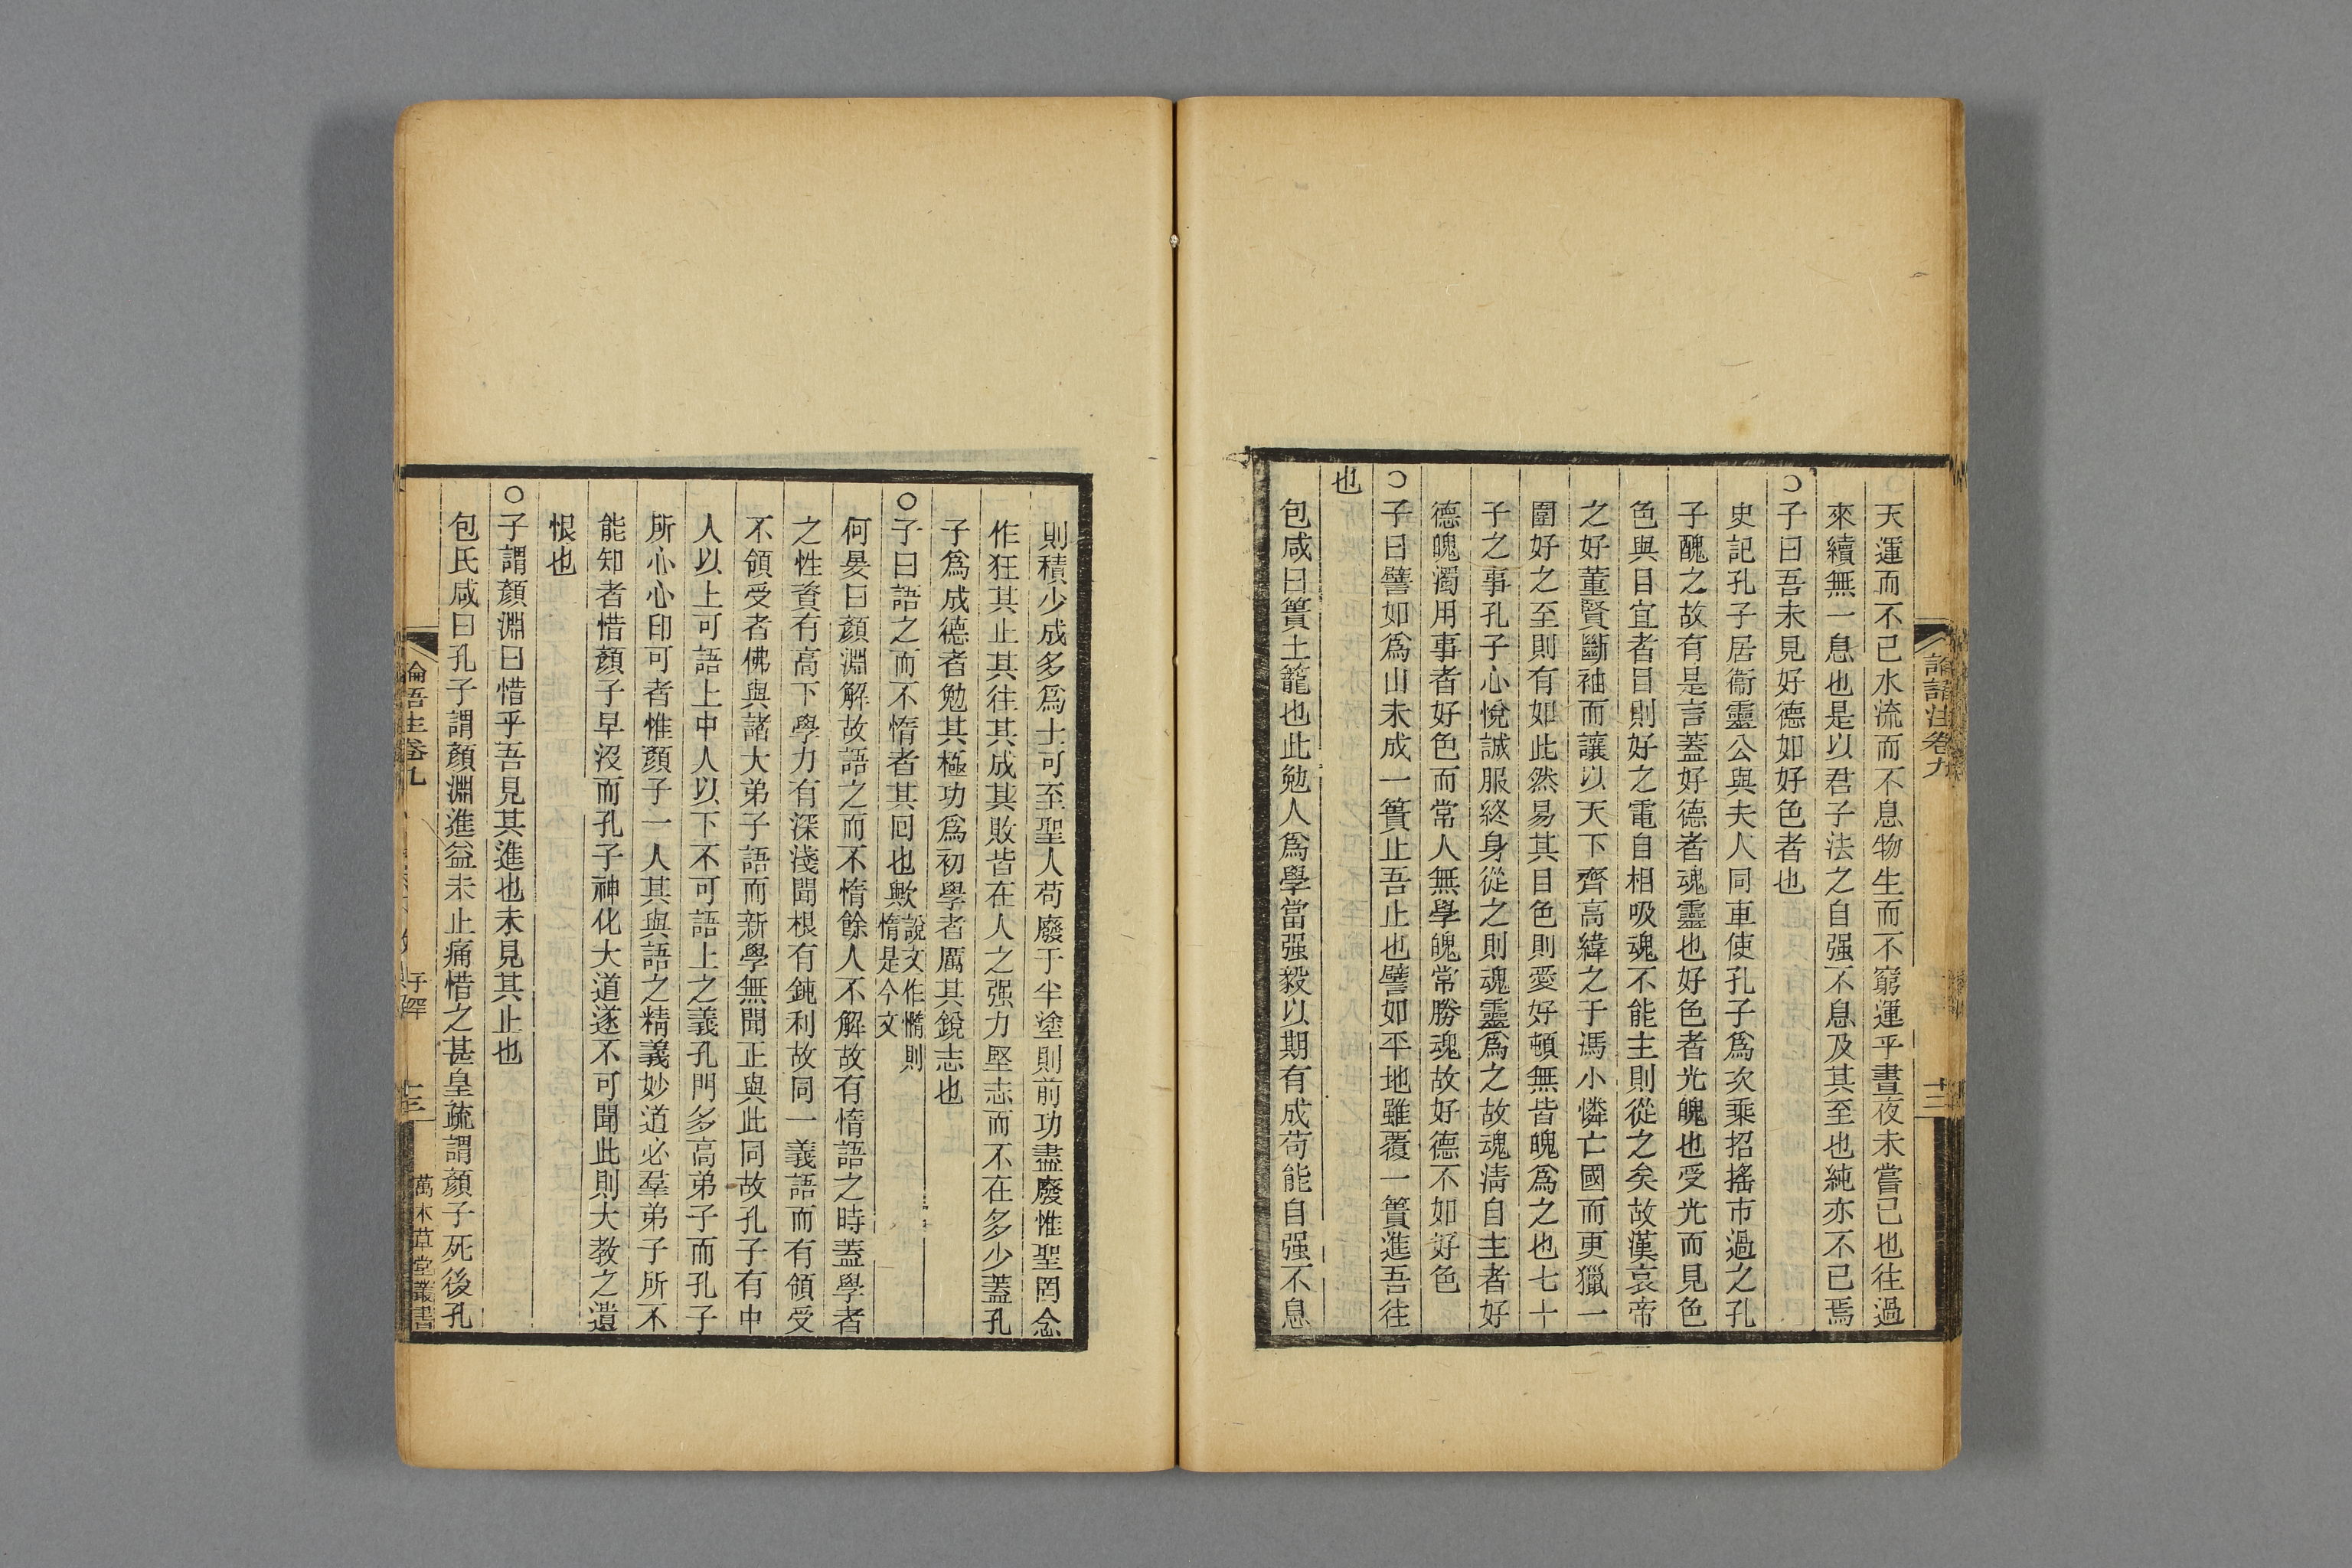 論語注卷九
十二
天運而不已水流而不息物生而不窮運乎晝夜未嘗已也往過
來續無一息也是以君子法之自强不息及其至也純亦不已焉
○子曰吾未見好德如好色者也
史記孔子居衞靈公與夫人同車使孔子爲次乘招搖市過之孔
子醜之故有是言蓋好德者魂靈也好色者光魄也受光而見色
色與目宜者目則好之電自相吸魂不能主則從之矣故漢哀帝
之好董賢斷袖而讓以天下齊高緯之于馮小憐亡國而更獵一
圍好之至則有如此然易其目色則愛好頓無皆魄爲之也七十
子之事孔子心悅誠服終身從之則魂靈爲之故魂淸自主者好
德魄濁用事者好色而常人無學魄常勝魂故好德不如好色
○子曰譬如爲山未成一簣止吾止也譬如平地雖覆一簣進吾往
也
包咸曰簣土籠也此勉人爲學當强毅以期有成苟能自强不息
則積少成多爲士可至聖人苟廢于半塗則前功盡廢惟聖罔念
作狂其止其往其成其敗皆在人之强力堅志而不在多少蓋孔
子爲成德者勉其極功爲初學者厲其銳志也
○子曰語之而不惰者其回也歟說文作憜則
惰是今文
何晏曰顏淵解故語之而不惰餘人不解故有惰語之時蓋學者
之性資有高下學力有深淺聞根有鈍利故同一義語而有領受
不領受者佛與諸大弟子語而新學無聞正與此同故孔子有中
人以上可語上中人以下不可語上之義孔門多高弟子而孔子
所心心印可者惟顏子一人其與語之精義妙道必羣弟子所不
能知者惜顏子早沒而孔子神化大道遂不可聞此則大教之遺
恨也
○子謂顏淵曰惜乎吾見其進也未見其止也
包氏咸曰孔子謂顏淵進益未止痛惜之甚皇疏謂顏子死後孔
論語注卷九
子罕
十三
萬木草堂叢書